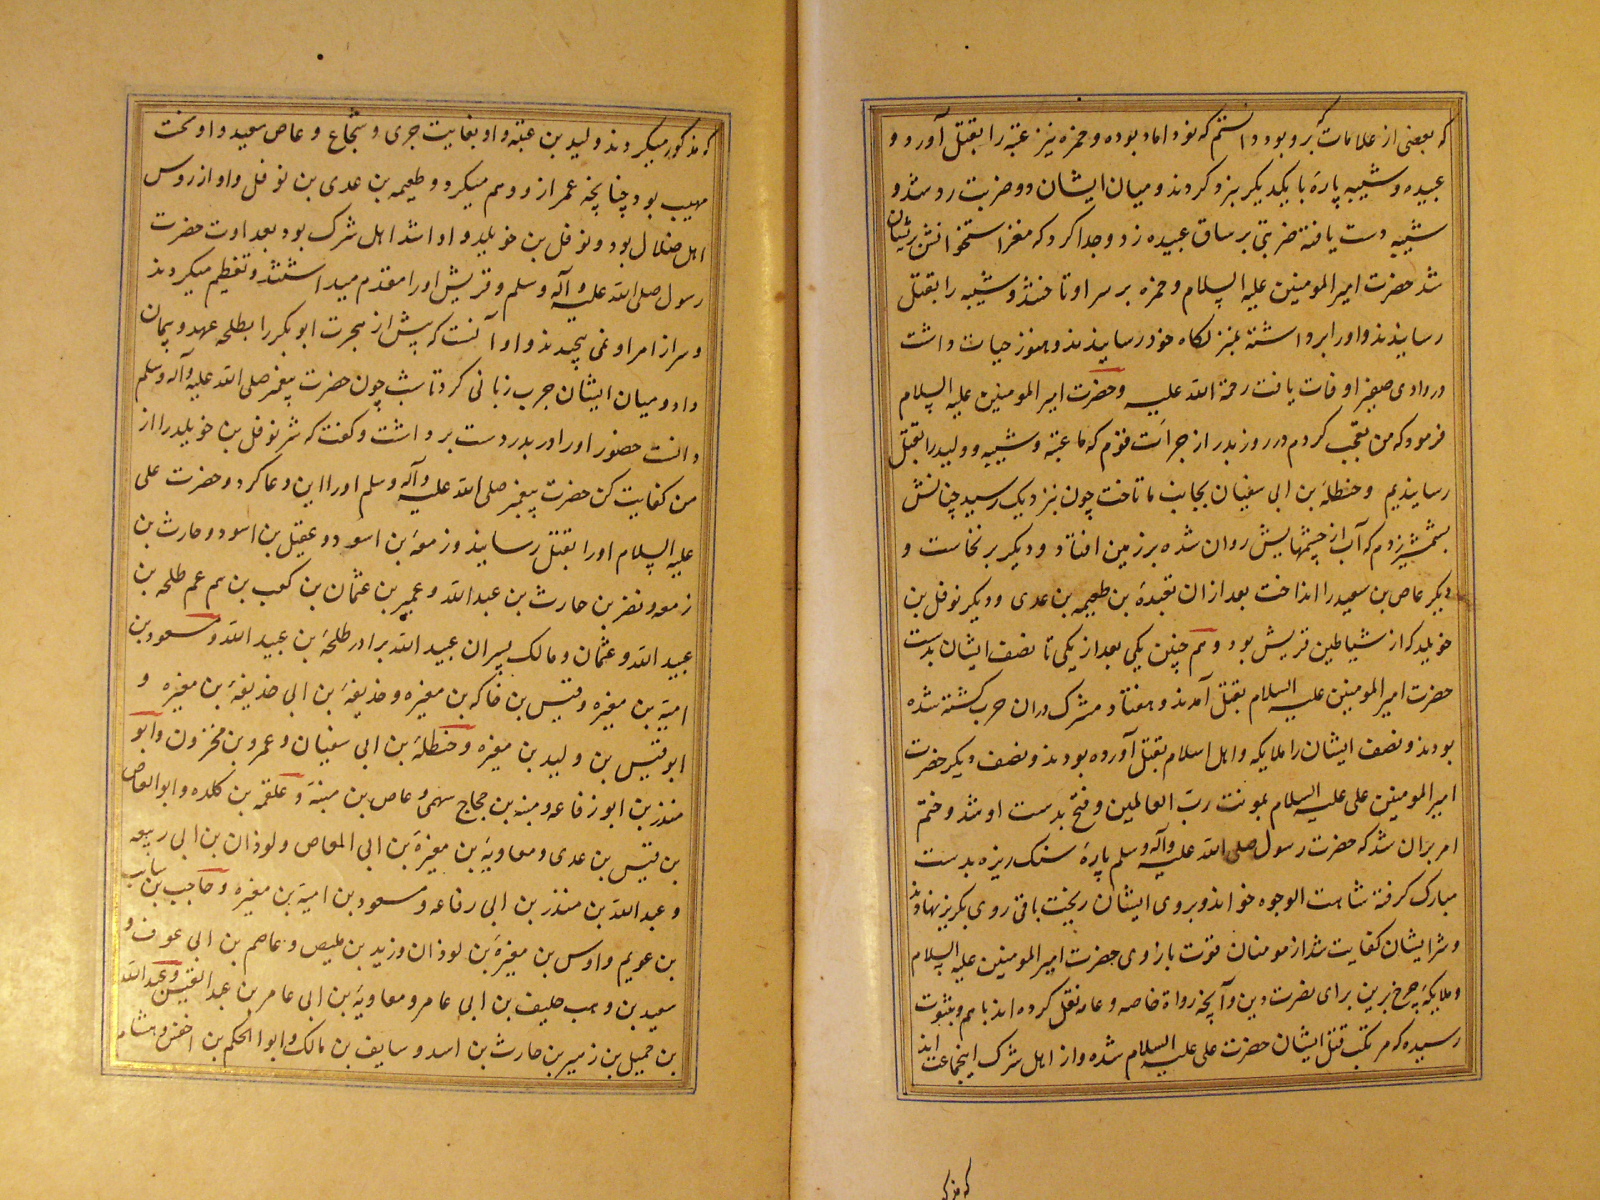 که بعضی از علامات که برو بود دانستم که نو داماد بوده و حمزه نیز عتبه را بقتل آورد و
عبیده و شیبه پارهٔ با یکدیگر نبرد کردند و میان ایشان دو ضربت رد شد و
شیبه دست یافته ضربتی بر ساق عبیده زد و جدا کرد که مغز استخوانش ریشان
شد حضرت امیر المومنین علیه السلام و حمزه بر سر او تاختند و شیبه را بقتل
رسانیدند و او را برداشته بمنزلکاه خود رسانیدند و هنوز حیات داشت
در وادی صفرا وفات یافت رحمة الله علیه و حضرت امیر المومنین علیه السلام
فرمود که من تعجب کردم در روز بدر از جرأت قوم که ما عتبه و شیبه و ولید را بقتل
رسانیدیم و حنظلهٔ بن ابی سفیان بجانب ما تاخت چون نزدیک رسید چنانش
بشمشیر زدم که آب از چشمهایش روان شده بر زمین افتاد و دیکر برنخاست و
دیکر عاص بن سعید را انداخت بعد ازان بن طعیمه بن عدی و دیکر نوفل بن
خویلد که از شیاطین قریش بود و هم چنین یکی بعد از یکی تا نصف ایشان بدست
حضرت امیر المومنین علیه السلام بقتل آمدند و هفتاد مشرک دران حرب کشته شده
بودند و نصف ایشان را ملایکه و اهل اسلام بقتل آورده بودند و نصف دیکر حضرت
امیر المومنین علی علیه السلام بمونت ربّ العالمین و فتح بدست او شد و ختم
امر بران شد که حضرت رسول صلی الله علیه وآله وسلم پارهٔ سنک ریزه بدست
مبارک کرفته شاهت الوجوه خواند و بروی ایشان ریخت باقی روی بکریز نهادند
و شر ایشان کفایت شد از مومنان قوت بازاوی حضرت امیر المومنین علیه السلام
و ملایکهٔ چرخ برین برای نصرت دین و آنچه رواة خاصه و عامه نقل کرده اند باهم و بثبوت
رسیده که مرتکب قتل ایشان حضرت علی علیه السلام شده و از اهل شرک اینجماعت اند
که مذکو
که مذکور میکردند ولید بن عتبه و او بغایت جری و شجاع و عاص سعید و او سخت
مهیب بود چنانچه عمر ازو وهم میکرد و طعیمه بن عدی بن نوفل و او از روس
اهل ضلال بود و نوفل بن خویلد و او اشد اهل شرک بود بعداوت حضرت
رسول صلی الله علیه وآله وسلم و قریش او را مقدم میداشتند و تعظیم میکردند
و سر از امر او نمی پیچیدند و او آنست که پیش از هجرت ابوبکر را بطلحه عهد و پیمان
داد و میان ایشان چرب زبانی کرد تا شب چون حضرت پیغمبر صلی الله علیه وآله وسلم
دانست حضور او را در بدر دست برداشت و کفت که شر نوفل بن خویلد را از
من کفایت کن حضرت پیغمبر صلی الله علیه وآله وسلم او را این دعا کرد و حضرت علی
علیه السلام او را بقتل رسانید و زمعهٔ بن اسود و عقیل بن اسود و حارث بن
زمعه و نضر بن حارث بن عبد الله و عمیر بن عثمان بن کعب بن هم عم طلحه بن
عبید الله و عثمان و مالک پسران عبید الله برادر طلحهٔ بن عبید الله و مسعود بن
امیهٔ بن مغیره و قیس بن فاکه بن مغیره و حذیفهٔ بن ابی حذیفهٔ بن مغیره و
ابو قیس بن ولید بن مغیره و حنظلهٔ بن ابی سفیان و عمرو بن مخزون و ابو
منذر بن ابو رفاعه و منبه بن حجاج سهمی و عاص بن منبه و علقمه بن کلده و ابو العاص
بن قیس بن عدی و معاویهٔ بن مغیرهٔ بن ابی العاص و لوذان بن ابی ربیعه
و عبد الله بن منذر بن ابی رفاعه و مسعود بن امیهٔ بن مغیره و حاجب بن سایب
بن عویم و اوس بن مغیرهٔ بن لوذان و زید بن ملیص و عاصم بن ابی عوف و
سعید بن وهب حلیف بن ابی عامر و معاویهٔ بن ابی عامر بن عبد القیس و عبد الله
بن جمیل بن زهیر بن حارث بن اسد و سایف بن مالک و ابو الحکم بن اخنس و هشام